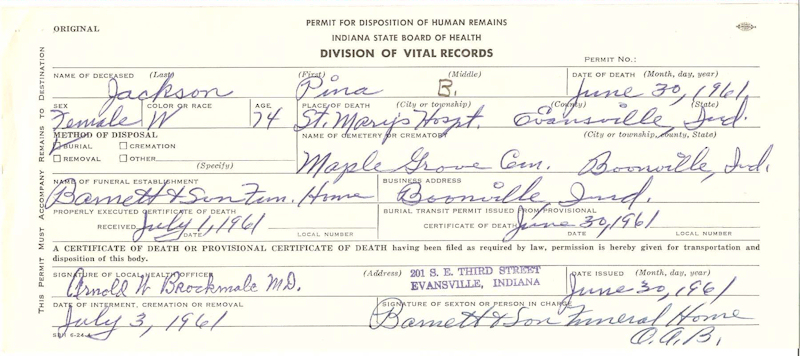 ORIGINAL
PERMIT FOR DISPOSITION OF HUMAN REMAINS
INDIANA STATE BOARD OF HEALTH
DIVISION OF VITAL RECORDS
PERMIT NO.:
THIS PERMIT MUST ACCOMPANY REMAINS TO DESTINATION
NAME OF DECEASED (Last) (First) (Middle) DATE OF DEATH (Month, day, year)
Jackson Pina B. June 30, 1961
SEX COLOR OR RACE AGE PLACE OF DEATH (City or township) (County) (State)
Female W 74 St. Mary's Hospt. Evansville, Ind.
METHOD OF DISPOSAL NAME OF CEMETERY OR CREMATORY (City or township, county, State)
BURIAL CREMATION
REMOVAL OTHER
(Specify)
Maple Grove Cem. Boonville, Ind.
NAME OF FUNERAL ESTABLISHMENT BUSINESS ADDRESS
Barnett & Son Fun. Home Boonville, Ind.
PROPERLY EXECUTED CERTIFICATE OF DEATH BURIAL TRANSIT PERMIT ISSUED FROM PROVISIONAL
RECEIVED July 1, 1961 CERTIFICATE OF DEATH June 30, 1961
DATE LOCAL NUMBER DATE LOCAL NUMBER
A CERTIFICATE OF DEATH OR PROVISIONAL CERTIFICATE OF DEATH having been filed as required by law, permission is hereby given for transportation and
disposition of this body.
SIGNATURE OF LOCAL HEALTH OFFICER (Address) 201 S. E. THIRD STREET DATE ISSUED (Month, day, year)
Arnold W Brockmole M.D. EVANSVILLE, INDIANA June 30, 1961
DATE OF INTERMENT, CREMATION OR REMOVAL SIGNATURE OF SEXTON OR PERSON IN CHARGE
July 3, 1961 Barnett & Son Funeral Home
O.A.B.